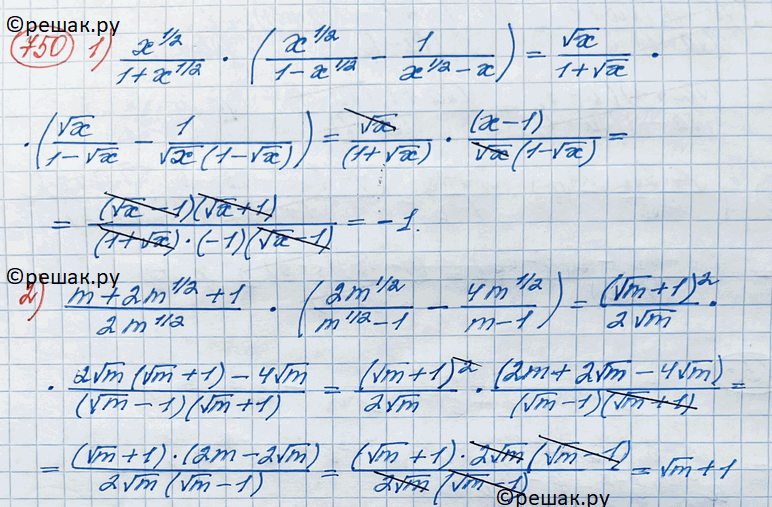 ©решак.ру
750 1) x^{1/2}/(1+x^{1/2}) · (x^{1/2}/(1-x^{1/2}) - 1/(x^{1/2}-x)) = √x/(1+√x) ·
· (√x/(1-√x) - 1/(√x(1-√x))) = √x/(1+√x) · (x-1)/(√x(1-√x)) =
= (√x-1)(√x+1)/((1+√x)·(-1)(√x-1)) = -1.
©решак.ру
2) (m+2m^{1/2}+1)/(2m^{1/2}) · (2m^{1/2}/(m^{1/2}-1) - 4m^{1/2}/(m-1)) = (√m+1)^2/(2√m) ·
· (2√m(√m+1)-4√m)/((√m-1)(√m+1)) = (√m+1)^2/(2√m) · (2m+2√m-4√m)/((√m-1)(√m+1)) =
= (√m+1)·(2m-2√m)/(2√m(√m-1)) = (√m+1)·2√m(√m-1)/(2√m(√m-1)) = √m+1
©решак.ру